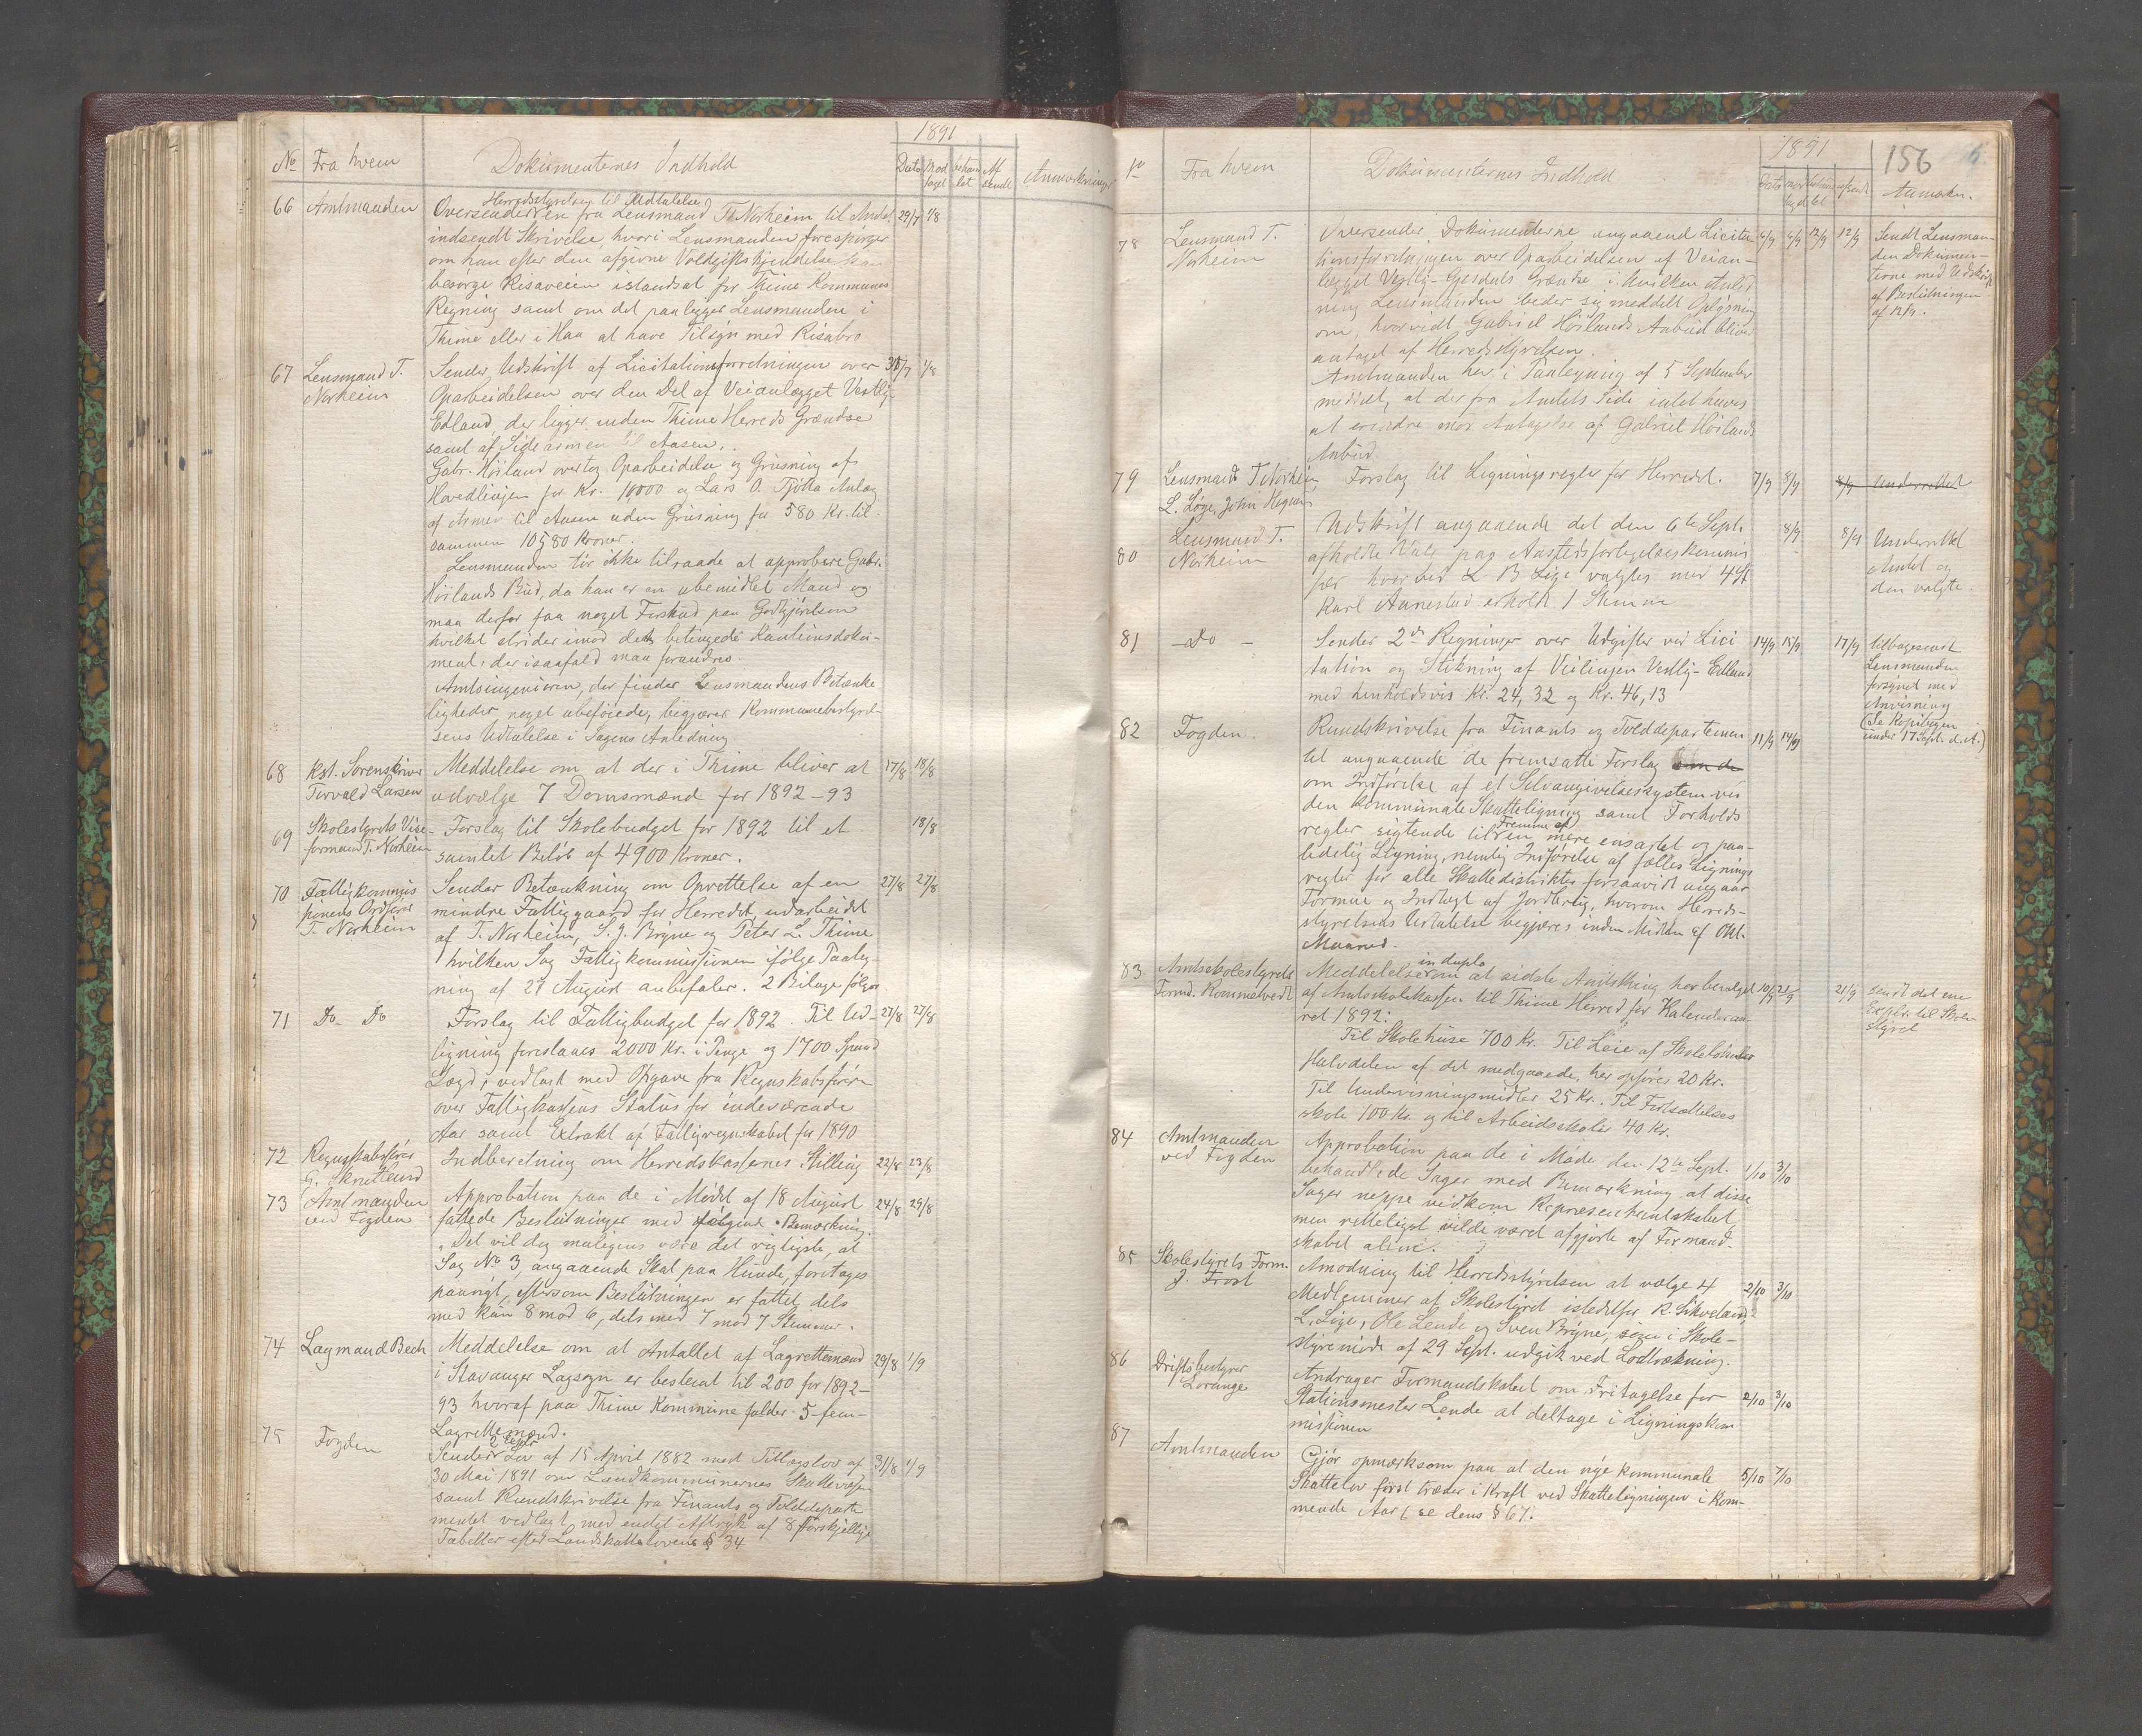 1891
No Fra hvem Dokumenternes Indhold Dato Mod taget behand let Af sendt Anmærkninger
66 Amtmanden
Herredsstyrelsen til Udtalelse
Oversender en fra Lensmand T. Norheim til Amtet 29/7 1/8
indsendt Skrivelse, hvori Lensmanden forespørger
om han efter den afgivne Voldgifts Kjendelse kan
besørge Risaveien istandsat for Thime Kommunes
Regning samt om det paalegger Lensmanden i
Thime eller i Haa at have Tilsyn med Risabro
67 Lensmand T. Norheim
Sender Udskrift af Licitationsforretningen over 30/7 1/8
Oparbeidelsen over den Del af Veianlægget Vestly-
Edland, der ligger inden Thime Herreds Grændse
samt af Sidearmen til Aasen.
Gabr. Høiland overtog Oparbeidelse og Grusning af
Hovedlinjen for Kr. 10000 og Lars O. Tjøtta Anlæg
af Armen til Aasen uden Grusning for 580 Kr. til-
sammen 10580 Kroner.
Lensmanden tør ikke tilraade at approbere Gabr.
Høilands Bud, da han er en ubemidlet Mand og
maa derfor faa noget Forskud paa Godtgjørelsen
hvilket strider imod det betingede Kautionsdoku-
ment, der isaafald maa forandres.
Amtsingeniøren, der finder Lensmandens Betænke
ligheder noget ubeføiede, begjærer Kommunebestyrel-
sens Udtalelse i Sagens Anledning
68 Kst. Sorenskriver Torvald Larsen
Meddelelse om at der i Thime bliver at 17/8 18/8
udvælge 7 Domsmænd for 1892-93
69 Skolestyrets Vise- formand T. Norheim
Forslag til Skolebudget for 1892 til et 18/8
samlet Beløb af 4900 Kroner.
70 Fattigkommis sionens Ordfører T. Norheim
Sender Betænkning om Oprettelse af en 27/8 27/8
mindre Fattiggaard for Herredet, udarbeidet
af T. Norheim, S. J. Bryne og Peter L. Thime
hvilken Sag Fattigkommissionen ifølge Paateg-
ning af 27 August anbefaler. 2 Bilage følger
71 Do Do
Forslag til Fattigbudget for 1892. Til Ud- 27/8 27/8
ligning foreslaaes 2000 Kr. i Penge og 1700 Spand
Lægd, vedlagt med Opgave fra Regnskabsfører
over Fattigkassens Status for indeværende
Aar samt Extrakt af Fattigregnskabet for 1890
72 Regnskabsfører G. Skretlund
Indberetning om Herredskassernes Stilling 22/8 23/8
73 Amtmanden ved Fogden
Approbation paa de i Mødet af 18 August 24/8 29/8
fattede Beslutninger med følgende Bemærkning.
"Det vil dog muligens være det rigtigste, at
Sag No 3, angaaende Skat paa Hunde, foretages
paanyt, eftersom Beslutningen er fattet, dels
med kun 8 mod 6, dels med 7 mod 7 Stemmer.
74 Lagmand Bech
Meddelelse om at Antallet af Lagrettemænd 29/8 1/9
i Stavanger Lagsogn er bestemt til 200 for 1892-
93 hvoraf paa Thime Kommune falder 5-fem-
Lagrettemænd.
75 Fogden
2 Expl
Sender Lov af 15 April 1882 med Tillægslov af 31/8 1/9
30 Mai 1891 om Landkommunernes Skattevæsen
samt Rundskrivelse fra Finants og Tolddeparte
mentet vedlagt med endel Aftryk af 8 forskjellige
Tabeller efter Landskattelovens § 34
1891 156
No Fra hvem Dokumenternes Indhold Dato mod taget behand let afsendt Anmærkn.
78 Lensmand T. Norheim
Oversender Dokumenterne angaaend Licita 6/9 6/9 12/9 12/9
tionsforretningen over Oparbeidelsen af Veian-
lægget Vestly-Gjesdals Grændse i hvilken Anled
ning Lensmanden beder sig meddelt Oplysning
om, hvorvidt Gabriel Høilands Anbud bliver
antaget af Herredsstyrelsen.
Amtmanden har i Paategning af 5 September
meddelt, at der fra Amtets Side intet haves
at erindre mod Antagelse af Gabriel Høilands
Anbud.
Sendt Lensman-
den Dokumen-
terne med Udskrift
af Beslutningen
af 12/9.
79 Lensmand T. Norheim L. Lyge, John Hognestad
Forslag til Ligningsregler for Herredet. 7/9 8/9 8/9 Underrettet
80 Lensmand T. Norheim
Udskrift angaaende det den 6te Sept. 8/9 8/9
afholdte Valg paa Aastedsforligelseskommis
sær hvorved L B Lige valgtes med 4 St
Karl Aanestad erholdt 1 Stemme
Underrettet
Amtet og
den valgte.
81 -Do-
Sender 2de Regninger over Udgifter ved Lici 14/9 15/9 17/9
tation og Stikning af Veilinjen Vestly-Edland
med henholdsvis Kr. 24,32 og Kr. 46,13
tilbagesendt
Lensmanden
forsynet med
Anvisning
(Se Kopibogen
under 17 Sept. d. A.)
82 Fogden.
Rundskrivelse fra Finants og Tolddepartemen 11/9 14/9
tet angaaende de fremsatte Forslag om de
om Indførelse af et Selvangivelsessystem ved
den kommunale Skatteligning samt Forholds
regler sigtende til Fremme af en mere ensartet og paa-
lidelig Ligning, nemlig Indførelse af fælles Lignings
regler for alle Skattedistrikter forsaavidt angaar
Formue og Indtægt af Jordbrug, hvorom Herreds-
styrelsens Udtalelse begjæres inden Midten af Okt.
Maaned.
83 Amtsskolestyrets Formd. Rommetvedt
in duplo
Meddelelse om at sidste Amtsthing har bevilget 10/9 21/9 21/9
af Amtsskolekassen til Thime Herred for Kalenderaa-
ret 1892:
Til Skolehuse 700 Kr. Til Leie af Skolelokaler
Halvdelen af det medgaaede, her opføres 20 Kr.
Til Undervisningsmidler 25 Kr. Til Fortsættelses
skole 100 Kr. og til Arbeidsskoler 40 Kr.
sendt det ene
Expl. til Skole-
styret
84 Amtmanden ved Fogden
Approbation paa de i Møde den 12te Sept. 1/10 3/10
behandlede Sager med Bemærkning at disse
Sager neppe vedkom Repræsentantskabet
men retteligst vilde været afgjorte af Formand-
skabet alene.
85 Skolestyrets Form. J. Frost
Anmodning til Herredsstyrelsen at vælge 4 2/10 3/10
Medlemmer af Skolestyret istedetfor R. Sikveland,
L. Lige, Ole Lende og Sven Bryne, som i Skole-
styremøde af 29 Sept. udgik ved Lodtrækning.
86 Driftsbestyrer Lorange
Andrager Formandskabet om Fritagelse for 2/10 3/10
Stationsmester Lende at deltage i Ligningskom
missionen
87 Amtmanden
Gjør opmærksom paa at den nye kommunale 5/10 7/10
Skattelov først træder i Kraft ved Skatteligningen i kom-
mende Aar (se dens § 67).